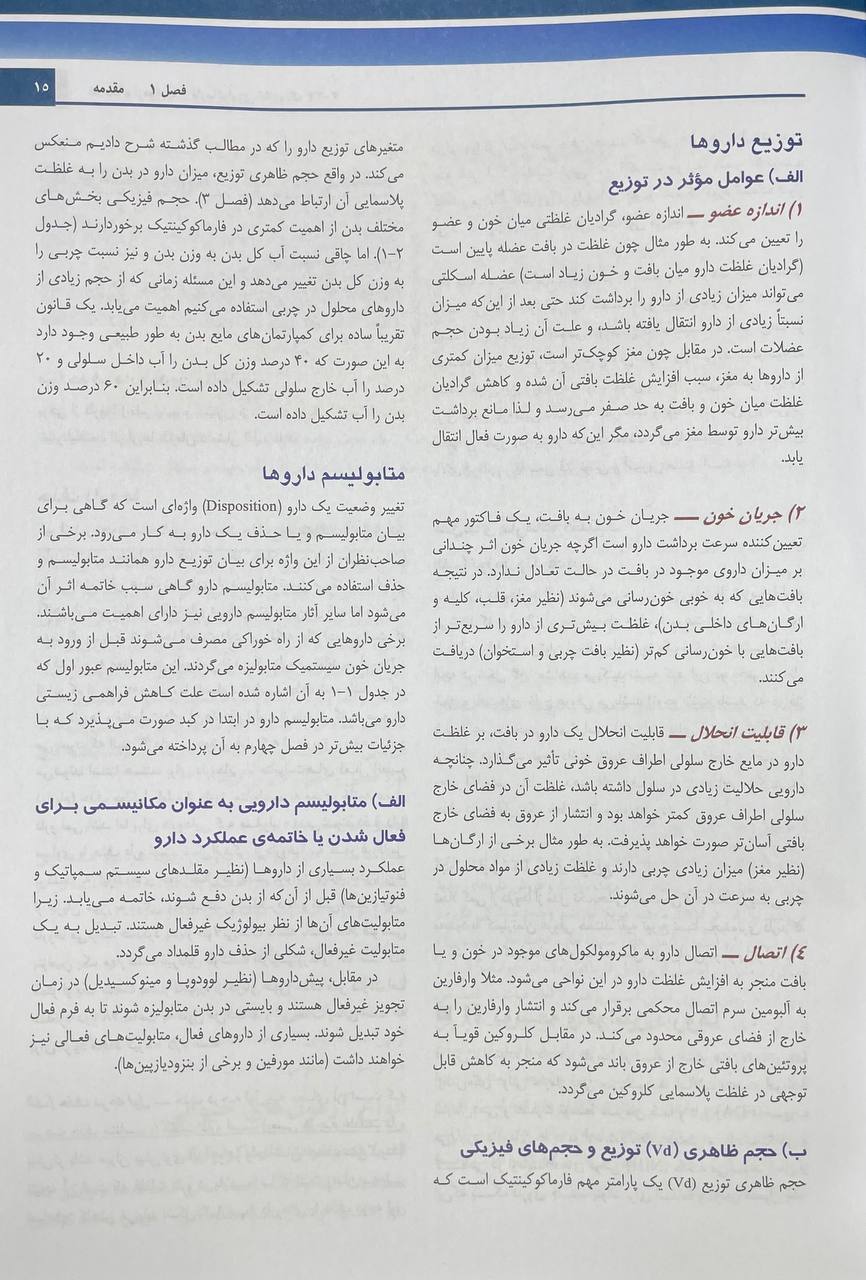 فصل ۱ مقدمه ۱۵
توزیع داروها
الف) عوامل مؤثر در توزیع
۱) اندازه عضو ــ اندازه عضو، گرادیان غلظتی میان خون و عضو
را تعیین می‌کند. به طور مثال چون غلظت در بافت عضله پایین است
(گرادیان غلظت دارو میان بافت و خون زیاد است) عضله اسکلتی
می‌تواند میزان زیادی از دارو را برداشت کند حتی بعد از این‌که میزان
نسبتاً زیادی از دارو انتقال یافته باشد، و علت آن زیاد بودن حجم
عضلات است. در مقابل چون مغز کوچک‌تر است، توزیع میزان کمتری
از داروها به مغز، سبب افزایش غلظت بافتی آن شده و کاهش گرادیان
غلظت میان خون و بافت به حد صفر می‌رسد و لذا مانع برداشت
بیش‌تر دارو توسط مغز می‌گردد، مگر این‌که دارو به صورت فعال انتقال
یابد.
۲) جریان خون ــ جریان خون به بافت، یک فاکتور مهم
تعیین‌کننده سرعت برداشت دارو است اگرچه جریان خون اثر چندانی
بر میزان داروی موجود در بافت در حالت تعادل ندارد. در نتیجه
بافت‌هایی که به خوبی خون‌رسانی می‌شوند (نظیر مغز، قلب، کلیه و
ارگان‌های داخلی بدن)، غلظت بیش‌تری از دارو را سریع‌تر از
بافت‌هایی با خون‌رسانی کم‌تر (نظیر بافت چربی و استخوان) دریافت
می‌کنند.
۳) قابلیت انحلال ــ قابلیت انحلال یک دارو در بافت، بر غلظت
دارو در مایع خارج سلولی اطراف عروق خونی تأثیر می‌گذارد. چنانچه
دارویی حلالیت زیادی در سلول داشته باشد، غلظت آن در فضای خارج
سلولی اطراف عروق کمتر خواهد بود و انتشار از عروق به فضای خارج
بافتی آسان‌تر صورت خواهد پذیرفت. به طور مثال برخی از ارگان‌ها
(نظیر مغز) میزان زیادی چربی دارند و غلظت زیادی از مواد محلول در
چربی به سرعت در آن حل می‌شوند.
٤) اتصال ــ اتصال دارو به ماکرومولکول‌های موجود در خون و یا
بافت منجر به افزایش غلظت دارو در این نواحی می‌شود. مثلا وارفارین
به آلبومین سرم اتصال محکمی برقرار می‌کند و انتشار وارفارین را به
خارج از فضای عروقی محدود می‌کند. در مقابل کلروکین قویاً به
پروتئین‌های بافتی خارج از عروق باند می‌شود که منجر به کاهش قابل
توجهی در غلظت پلاسمایی کلروکین می‌گردد.
ب) حجم ظاهری (Vd) توزیع و حجم‌های فیزیکی
حجم ظاهری توزیع (Vd) یک پارامتر مهم فارماکوکینتیک است که
متغیرهای توزیع دارو را که در مطالب گذشته شرح دادیم منعکس
می‌کند. در واقع حجم ظاهری توزیع، میزان دارو در بدن را به غلظت
پلاسمایی آن ارتباط می‌دهد (فصل ۳). حجم فیزیکی بخش‌های
مختلف بدن از اهمیت کمتری در فارماکوکینتیک برخوردارند (جدول
۲-۱). اما چاقی نسبت آب کل بدن به وزن بدن و نیز نسبت چربی را
به وزن کل بدن تغییر می‌دهد و این مسئله زمانی که از حجم زیادی از
داروهای محلول در چربی استفاده می‌کنیم اهمیت می‌یابد. یک قانون
تقریباً ساده برای کمپارتمان‌های مایع بدن به طور طبیعی وجود دارد
به این صورت که ۴۰ درصد وزن کل بدن را آب داخل سلولی و ۲۰
درصد را آب خارج سلولی تشکیل داده است. بنابراین ۶۰ درصد وزن
بدن را آب تشکیل داده است.
متابولیسم داروها
تغییر وضعیت یک دارو (Disposition) واژه‌ای است که گاهی برای
بیان متابولیسم و یا حذف یک دارو به کار می‌رود. برخی از
صاحب‌نظران از این واژه برای بیان توزیع دارو همانند متابولیسم و
حذف استفاده می‌کنند. متابولیسم دارو گاهی سبب خاتمه اثر آن
می‌شود اما سایر آثار متابولیسم دارویی نیز دارای اهمیت می‌باشند.
برخی داروهایی که از راه خوراکی مصرف می‌شوند قبل از ورود به
جریان خون سیستمیک متابولیزه می‌گردند. این متابولیسم عبور اول که
در جدول ۱-۱ به آن اشاره شده است علت کاهش فراهمی زیستی
دارو می‌باشد. متابولیسم دارو در ابتدا در کبد صورت می‌پذیرد که با
جزئیات بیش‌تر در فصل چهارم به آن پرداخته می‌شود.
الف) متابولیسم دارویی به عنوان مکانیسمی برای
فعال شدن یا خاتمه‌ی عملکرد دارو
عملکرد بسیاری از داروها (نظیر مقلدهای سیستم سمپاتیک و
فنوتیازین‌ها) قبل از آن‌که از بدن دفع شوند، خاتمه می‌یابد. زیرا
متابولیت‌های آن‌ها از نظر بیولوژیک غیرفعال هستند. تبدیل به یک
متابولیت غیرفعال، شکلی از حذف دارو قلمداد می‌گردد.
در مقابل، پیش‌داروها (نظیر لوودوپا و مینوکسیدیل) در زمان
تجویز غیرفعال هستند و بایستی در بدن متابولیزه شوند تا به فرم فعال
خود تبدیل شوند. بسیاری از داروهای فعال، متابولیت‌های فعالی نیز
خواهند داشت (مانند مورفین و برخی از بنزودیازپین‌ها).